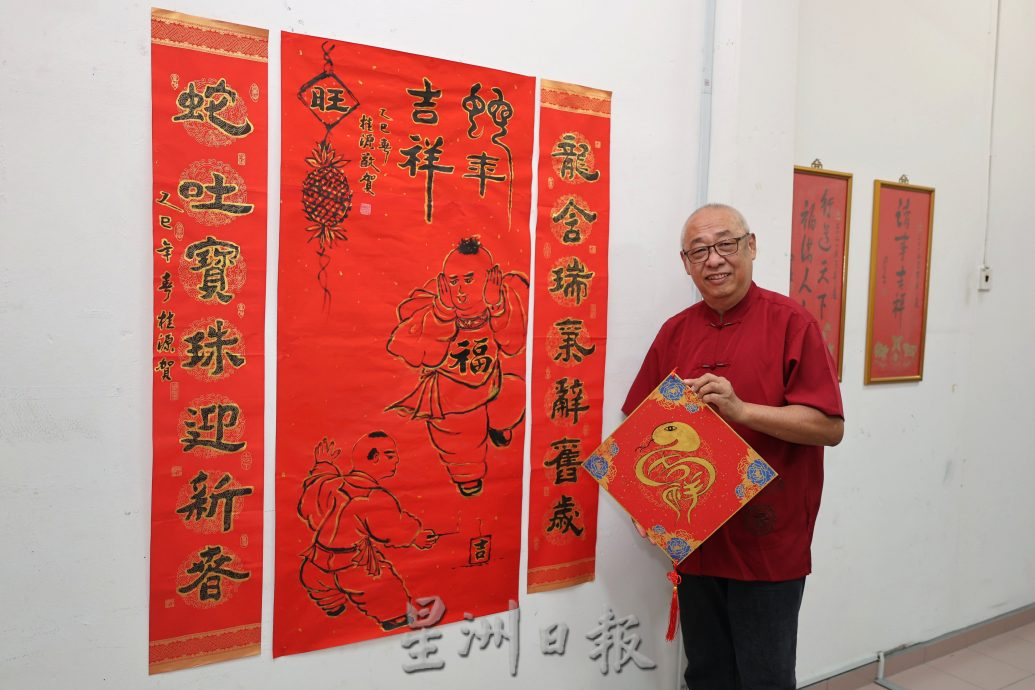 龍含瑞氣辭舊歲
蛇年
吉祥
乙巳年
桂源敬賀
旺
福
吉
蛇吐寶珠迎新春
乙巳年春 桂源賀
行運天下
福滿人
吉祥
星洲日報